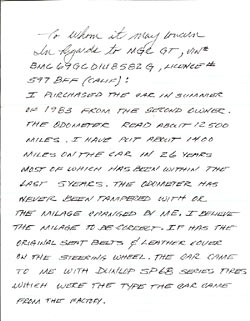 To Whom it may concern
In Regards to MGC GT, VIN#
BMC69GCD1U8582G, LICENCE#
597 BFF (CALIF):
I PURCHASED THE CAR IN SUMMER
OF 1983 FROM THE SECOND OWNER.
THE ODOMETER READ ABOUT 12500
MILES. I HAVE PUT ABOUT 1400
MILES ON THE CAR IN 26 YEARS
MOST OF WHICH HAS BEEN WITHIN THE
LAST 5 YEARS. THE ODOMETER HAS
NEVER BEEN TAMPERED WITH OR
THE MILAGE CHANGED BY ME. I BELIEVE
THE MILAGE TO BE CORRECT. IT HAS THE
ORIGINAL SEAT BELTS & LEATHER COVER
ON THE STEERING WHEEL. THE CAR CAME
TO ME WITH DUNLOP SP68 SERIES TIRES
WHICH WERE THE TYPE THE CAR CAME
FROM THE FACTORY.